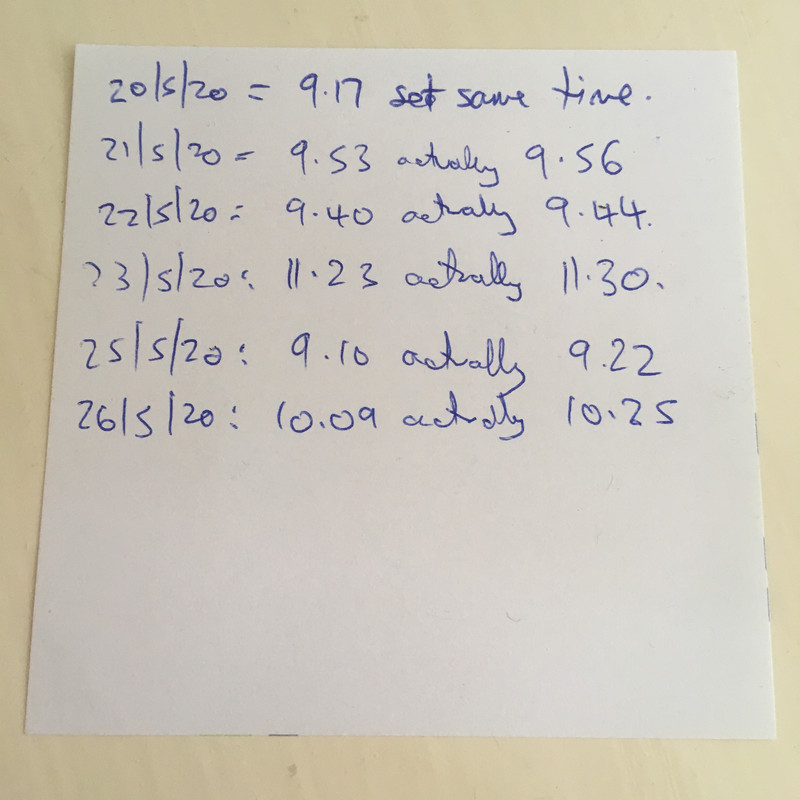 20/5/20 = 9.17 set same time.
21/5/20 = 9.53 actually 9.56
22/5/20: 9.40 actually 9.44.
23/5/20: 11.23 actually 11.30.
25/5/20: 9.10 actually 9.22
26/5/20: 10.09 actually 10.25